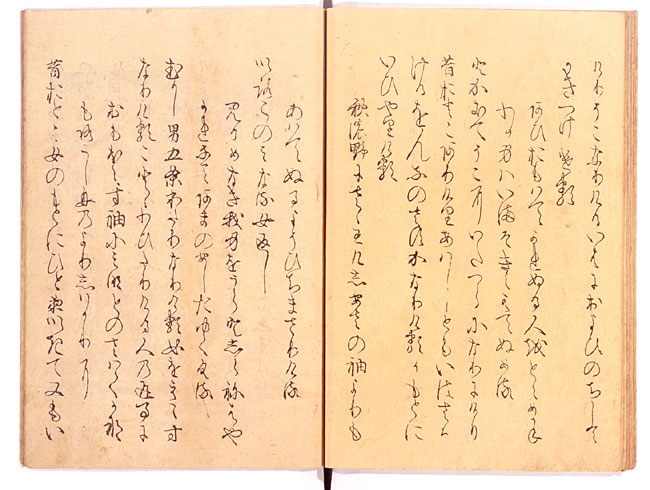 りけるいはにおよひのちして
かきつけゝる
あひおもはてかれぬる人をとゝめかね
わか身はいまそきえはてぬめる
とかきてそこにいたつらになりにけり
昔おとこありけりあはしともいはさり
ける をんなのさすかなりけるかもとに
いひやりける
秋の野にさゝわけしあさの袖よりも
あはてぬるよそひちまさりける
いろこのみなる女返し
見るめなき我身をうらとしらねはや
かれなてあまのあしたゆくくる
むかし男五条わたりなりける女をえゝす
なりにけることゝわひたりける人の返事に
おもほえす袖にみなとのさはくかな
もろこし舟のよりしはかりに
昔おとこ女のもとにひと夜いきて又もい